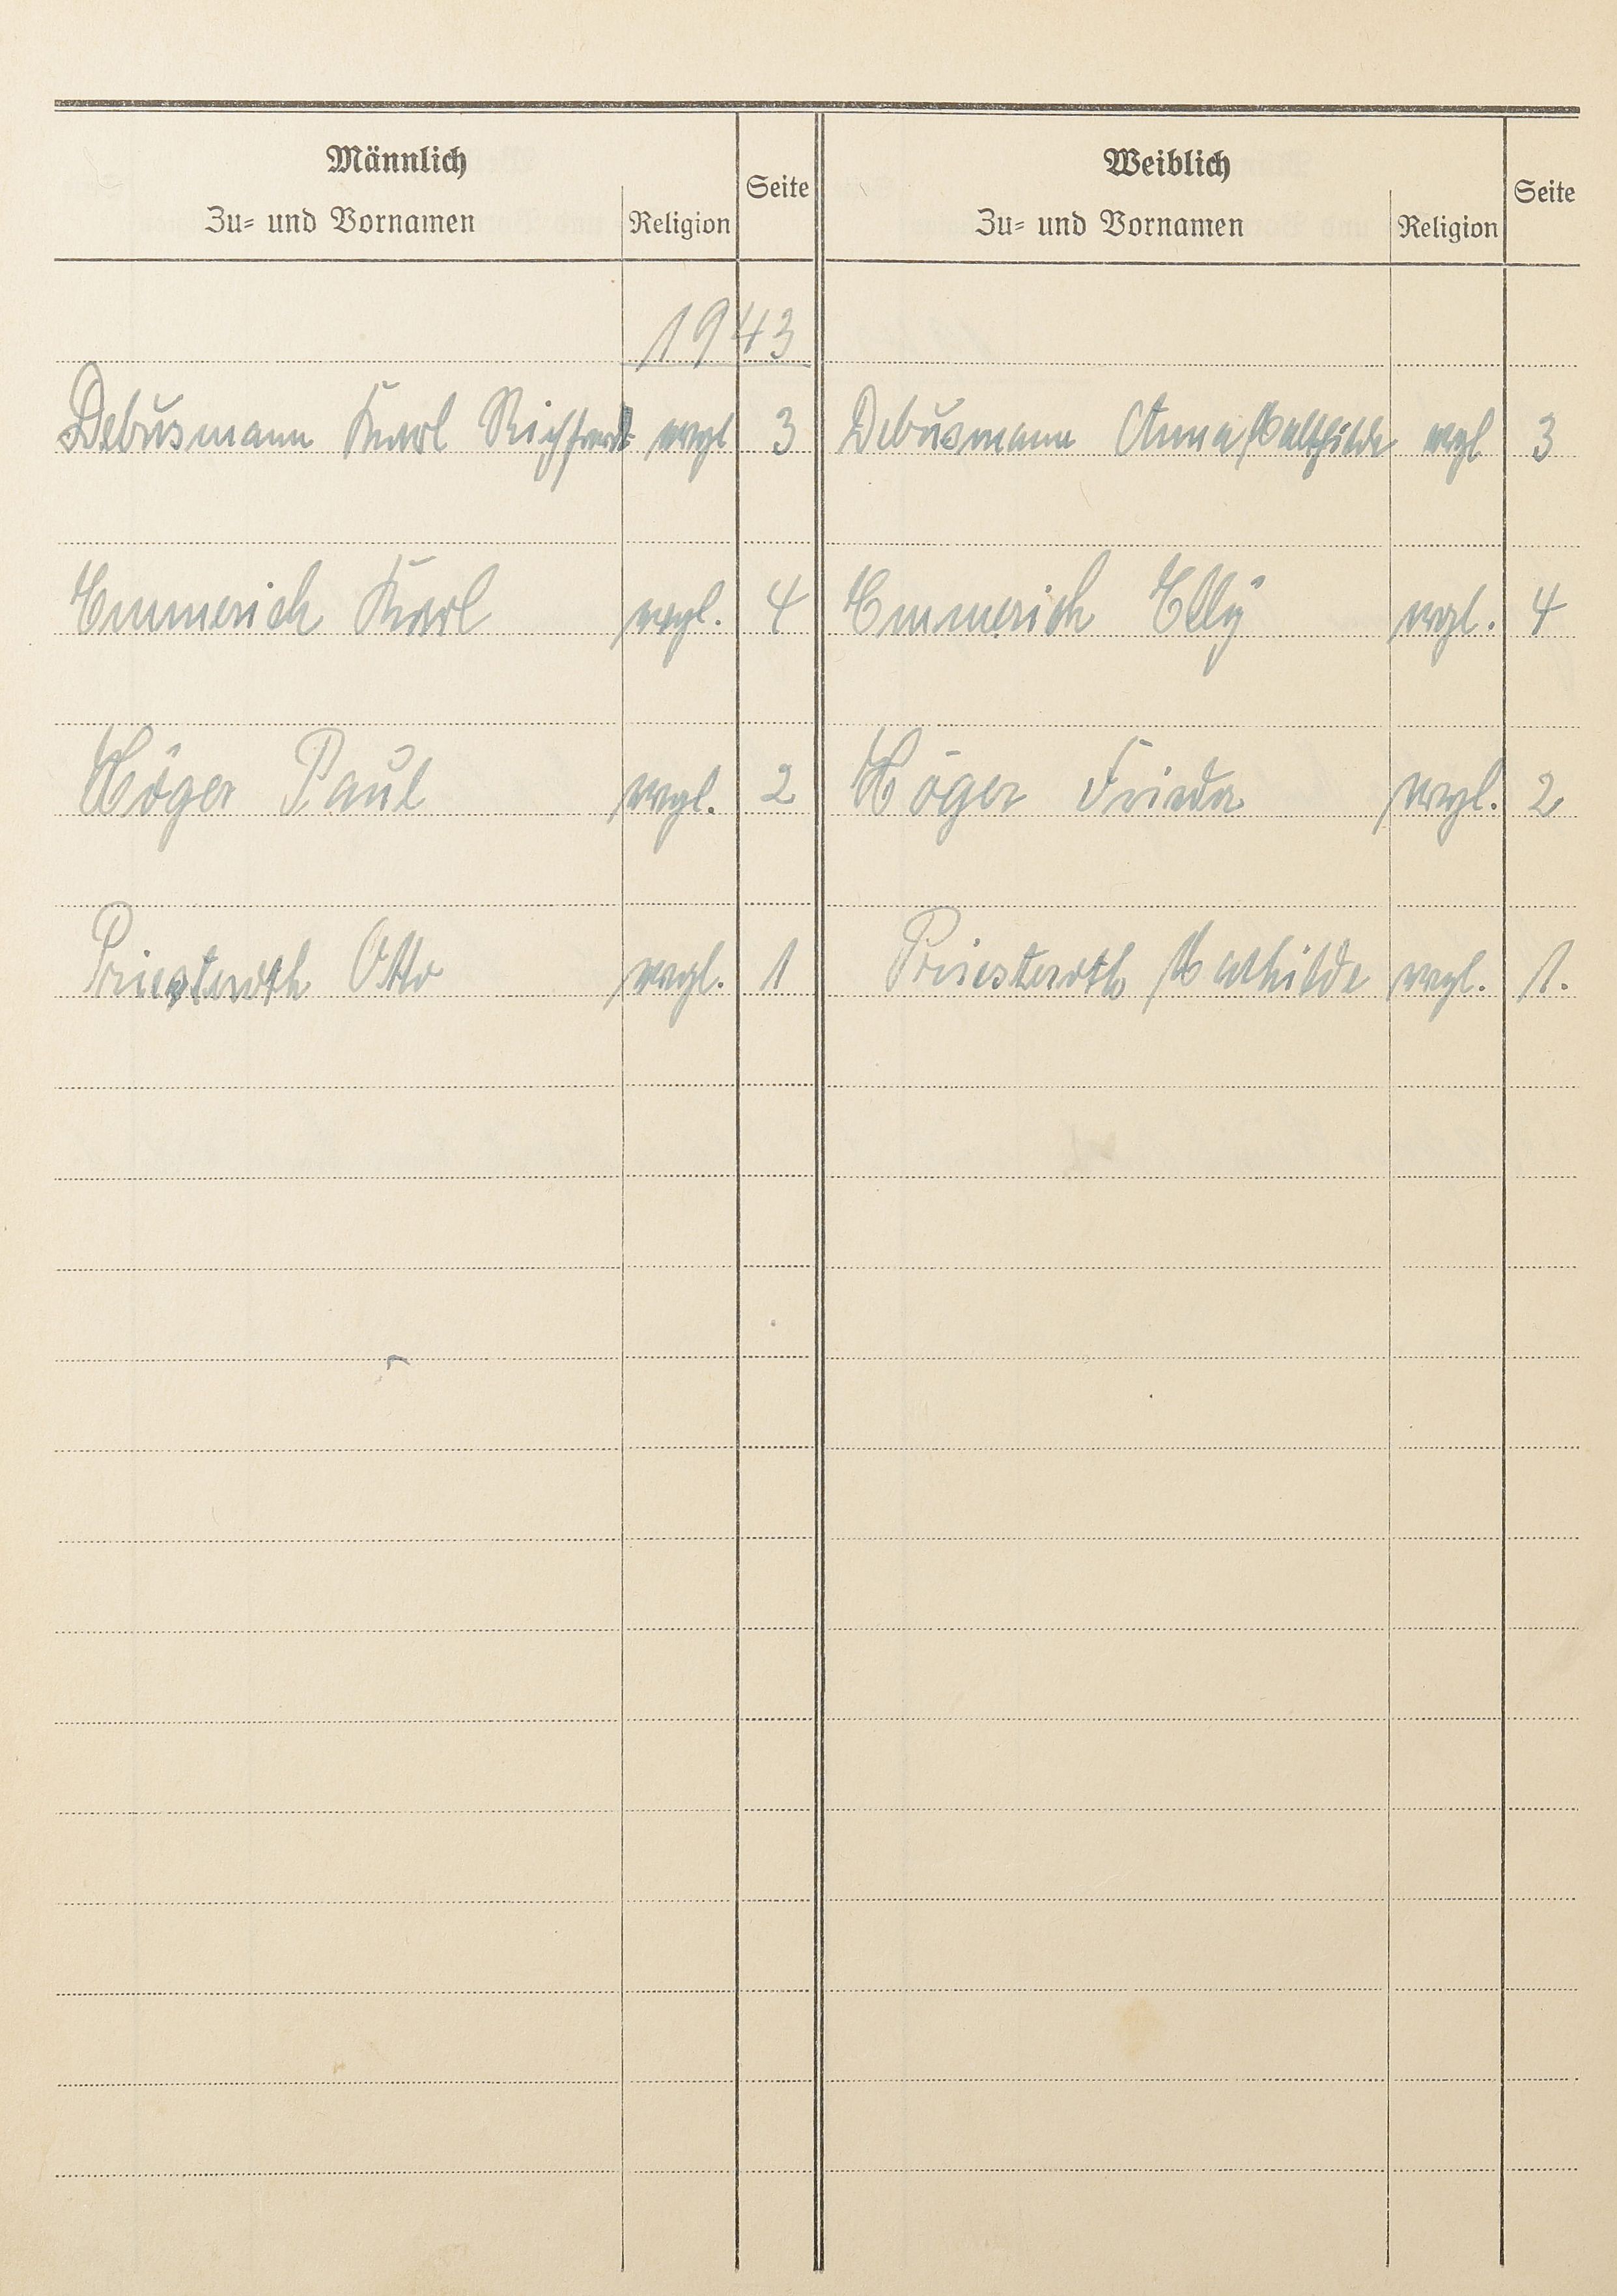 Männlich
Zu- und Vornamen Religion Seite
Weiblich
Zu- und Vornamen Religion Seite
1943
Debusmann Karl Richard evgl 3 Debusmann Anna Mathilde evgl 3
Emmerich Karl evgl. 4 Emmerich Elly evgl. 4
Höger Paul evgl. 2 Höger Frieda evgl. 2
Priesteroth Otto evgl. 1 Priesteroth Mathilde evgl. 1.